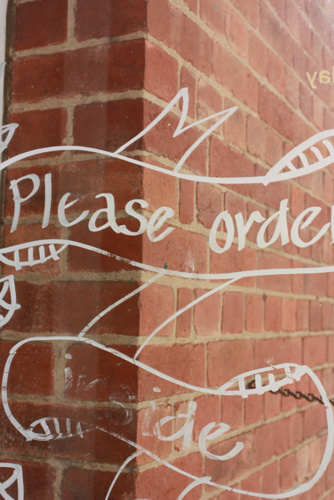 Please order
inside